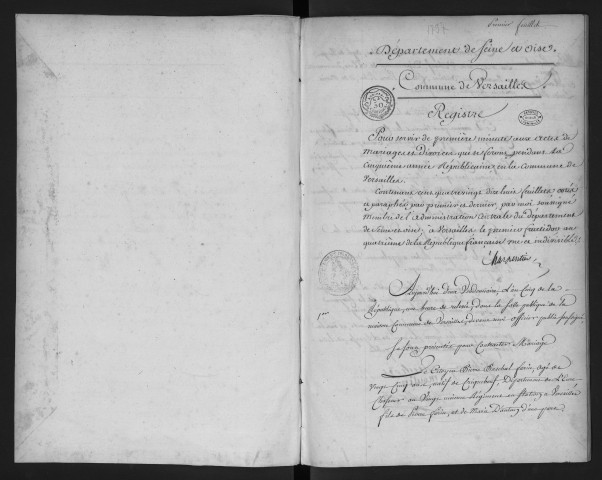 Premier feuillet
Département de Seine et Oise
Commune de Versailles
Registre
Pour servir de première minute aux actes de
mariages et divorces qui se feront pendant la
cinquième année Républicaine en la Commune de
Versailles.
Contenant cent quatre vingt dix huit feuillets cotés
et paraphés par premier et dernier, par moi soussigné
membre de l'administration centrale du département
de Seine et Oise, à Versailles le premier fructidor an
quatrième de la République française une et indivisible.
Charpentier
1er
Aujourd'hui deux Vendémiaire, L'an Cinq de la
République, une heure de relevée, dans la salle publique de la
maison Commune de Versailles, devant moi officier public soussigné
Se sont présentés pour Contracter Mariage
Le Citoyen Pierre
Vingt Cinq ans, natif de Département de L'Eure
Chasseur au Vingt Régiment en à Versailles
fils de Pierre et de Marie